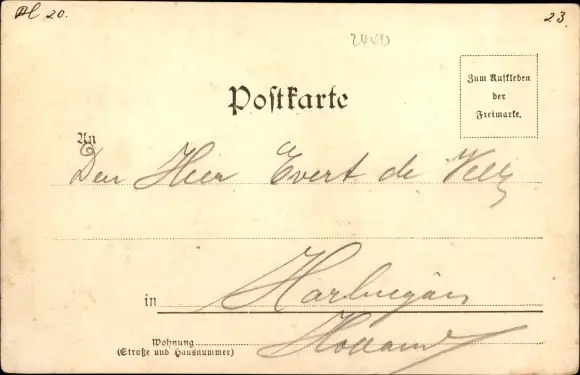 Al 20.
23.
2400
Zum Aufkleben
der
Freimarke.
Postkarte
An
Den Heer Evert de Velz
in Harlingen
Holland
Wohnung
(Straße und Hausnummer)